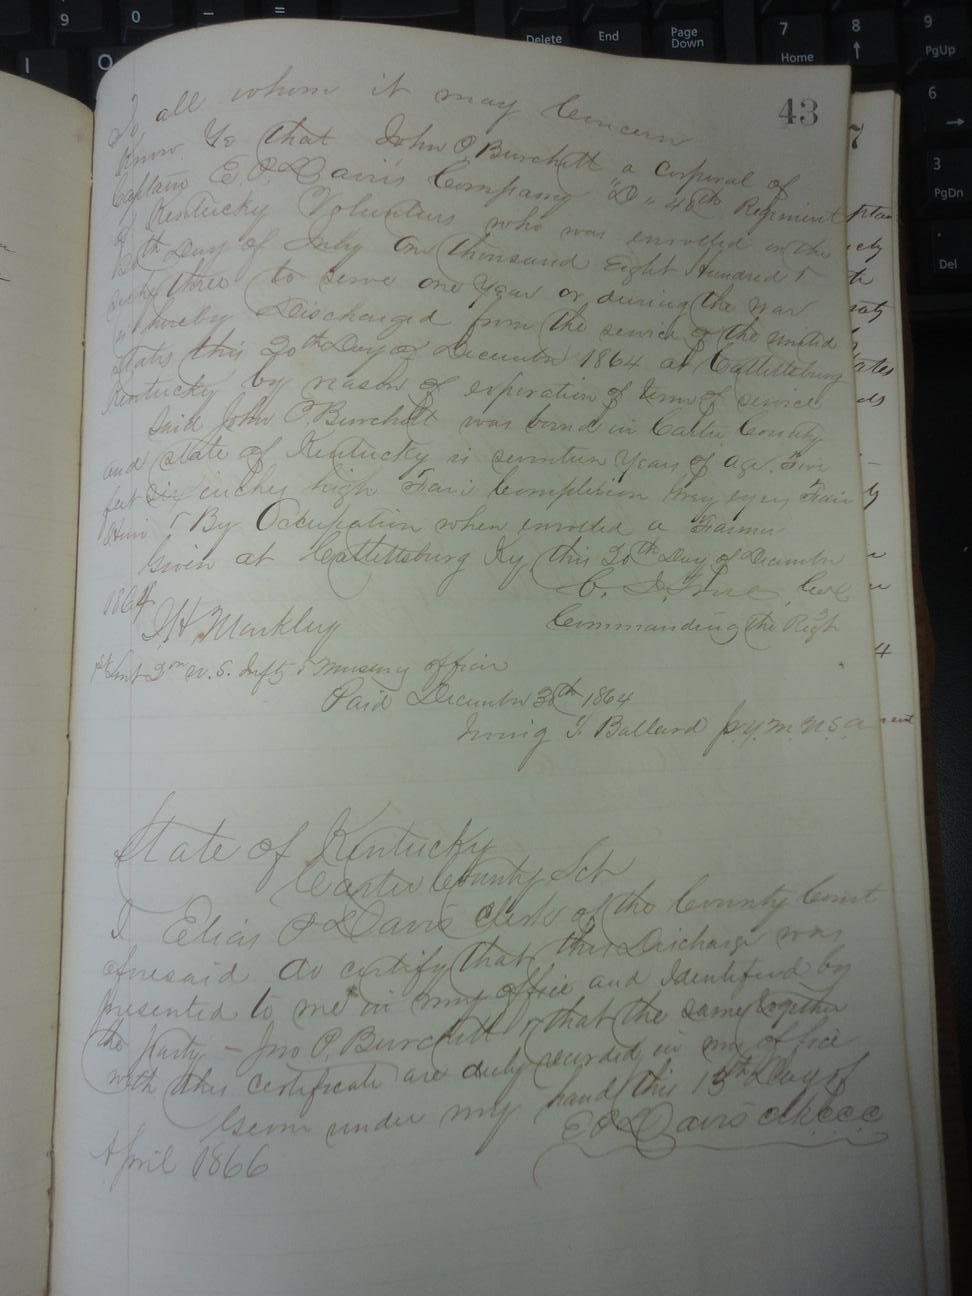 43
To all whom it may Concern
Know Ye that John P. Burchett a corporal of
Captain E. P. Davis Company "D" 40th Regiment
of Kentucky Volunteers who was enrolled on the
Day of July One thousand Eight Hundred &
sixty three to serve one Year or during the war
is hereby Discharged from the service of the united
States this 20th Day of December 1864 at Catlettsburg
Kentucky by reason of experation of term of service
Said John P. Burchett was born in Carter County
and state of Kentucky is seventeen Years of age Five
feet six inches high Fair Complexion Grey eyes Fair
Hair & By Occupation when enrolled a Farmer
Given at Catlettsburg Ky this 20th Day of December
1864
C. J. True Col
Commanding the Regt
J H Markley
1st Lieut U. S. Infty & Mustering officer
Paid December 30th 1864
Irving T. Ballard
State of Kentucky
Carter County Sct
I Elias P Davis Clerk of the County Court
aforesaid do certify that this Discharge was
presented to me in my office and Identified by
the party - Jno P. Burchett & that the same together
with this certificate are duly recorded in my office
Given under my hand this 15th Day of
April 1866
E P Davis clk C C C
9
0
-
=
I
O
Delete
End
Page
Down
7
Home
8
9
PgUp
6
3
PgDn
Del